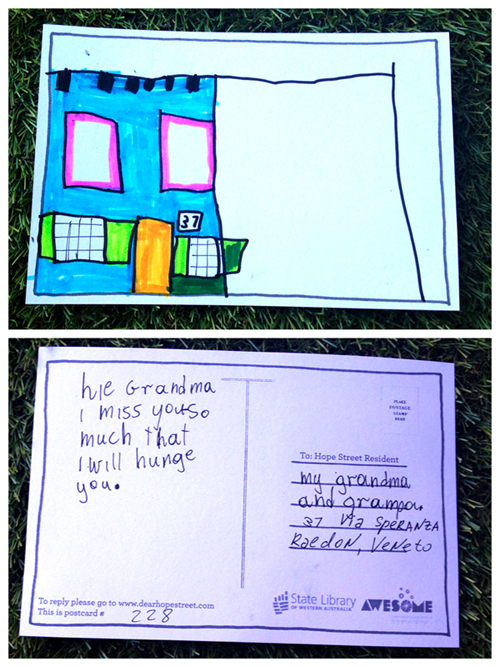 37
hie Grandma
i miss youso
much that
I will hunge
you.
PLACE
POSTAGE
STAMP
HERE
To: Hope Street Resident
my grandma
and grampa.
37 Via SPERANZA
RaedoN, VeNeto
To reply please go to www.dearhopestreet.com
This is postcard # 228
State Library
OF WESTERN AUSTRALIA
AWESOME